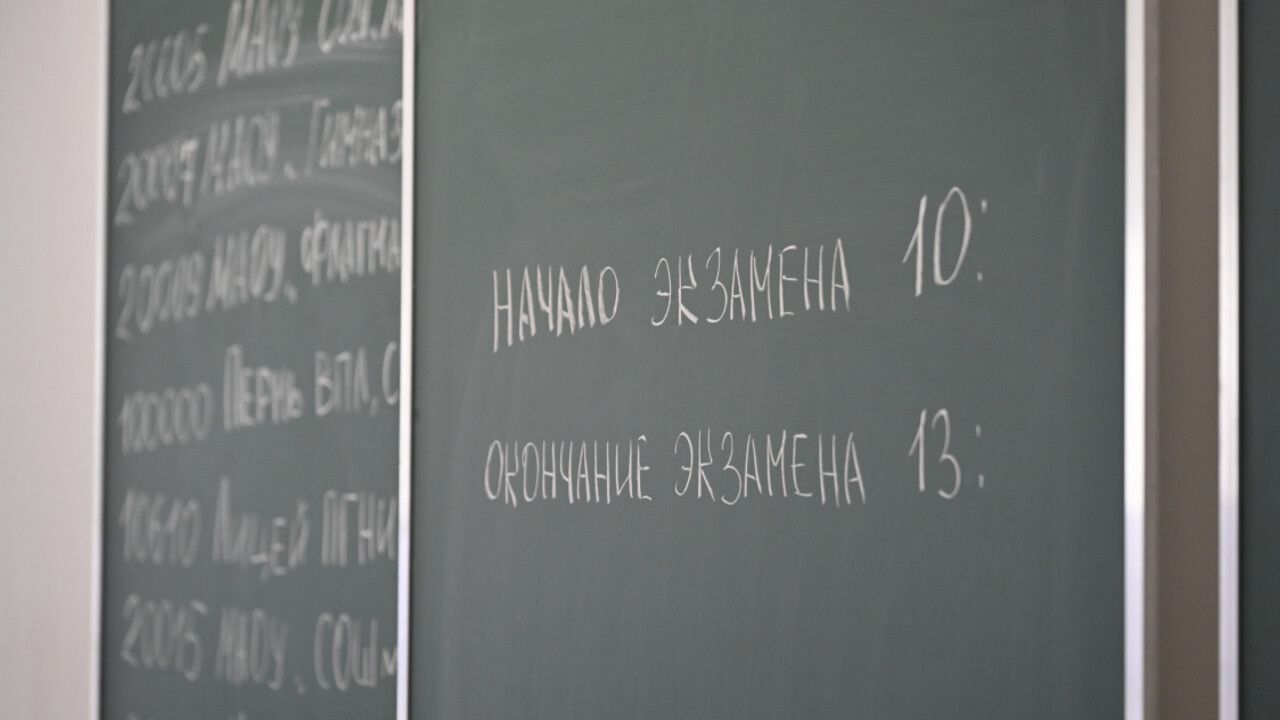 20005 МАОУ СОШ
20007 МАОУ, ГИМНАЗ
20019 МАОУ, ФЛАГМА
100000 ПЕРМЬ ВПЛ, С
10610 ЛИЦЕЙ ПГНИ
20015 МАОУ, СОШ
НАЧАЛО ЭКЗАМЕНА 10:
ОКОНЧАНИЕ ЭКЗАМЕНА 13: